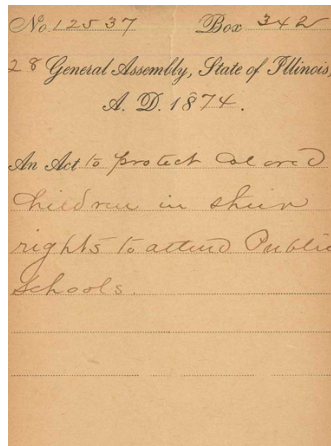 No. 12537 Box 342
28 General Assembly, State of Illinois,
A. D. 1874.
An Act to protect Colored
Children in their
rights to attend Public
Schools.